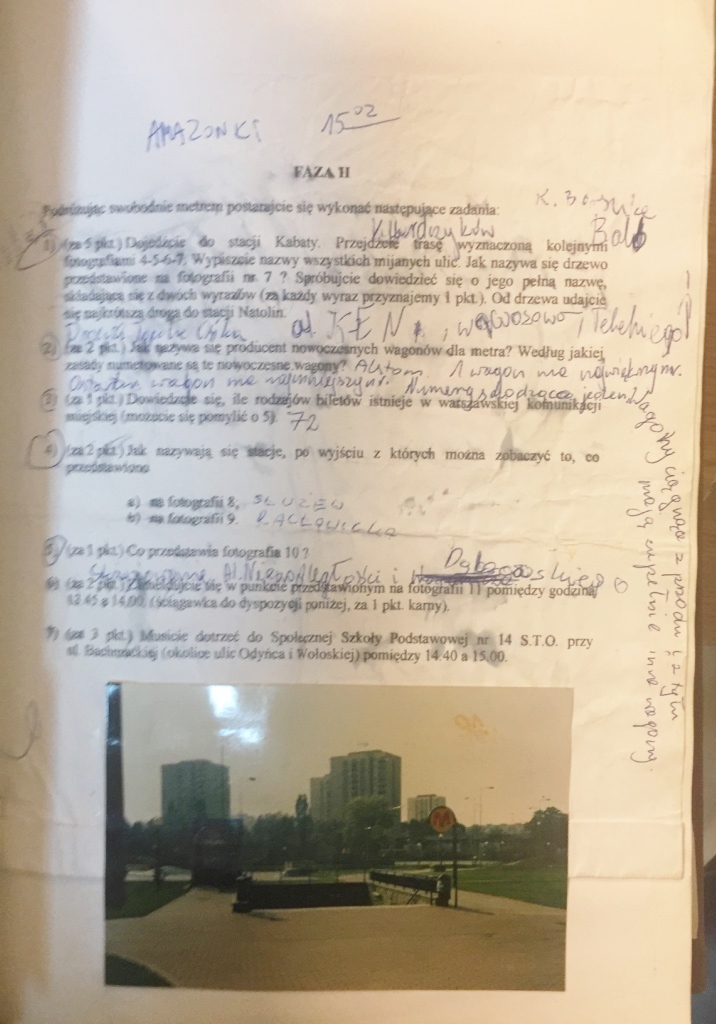 AMAZONKI 15 02
FAZA II
Podróżując swobodnie metrem postarajcie się wykonać następujące zadania:
1) (za 5 pkt.) Dojedźcie do stacji Kabaty. Przejdźcie trasę wyznaczoną kolejnymi
fotografiami 4-5-6-7. Wypiszcie nazwy wszystkich mijanych ulic. Jak nazywa się drzewo
przedstawione na fotografii nr 7 ? Spróbujcie dowiedzieć się o jego pełną nazwę,
składającą się z dwóch wyrazów (za każdy wyraz przyznajemy 1 pkt.). Od drzewa udajcie
się najkrótszą drogą do stacji Natolin.
al. KEN, wąwozowa, Telekiego
2) (za 2 pkt.) Jak nazywa się producent nowoczesnych wagonów dla metra? Według jakiej
zasady numerowane są te nowoczesne wagony? Alstom. 1 wagon ma największy nr.
Ostatni wagon ma najmniejszy nr.
3) (za 1 pkt.) Dowiedzcie się, ile rodzajów biletów istnieje w warszawskiej komunikacji
miejskiej (możecie się pomylić o 5). 72
4) (za 2 pkt.) Jak nazywają się stacje, po wyjściu z których można zobaczyć to, co
przedstawiono
a) na fotografii 8, SŁUŻEW
b) na fotografii 9. RACŁAWICKA
5) (za 1 pkt.) Co przedstawia fotografia 10 ?
Al. Niepodległości i Dąbrowskiego
6) (za 2 pkt.) Zameldujcie się w punkcie przedstawionym na fotografii 11 pomiędzy godziną
13.45 a 14.00. (ściągawka do dyspozycji poniżej, za 1 pkt. karny).
7) (za 3 pkt.) Musicie dotrzeć do Społecznej Szkoły Podstawowej nr 14 S.T.O. przy
ul. (okolice ulic Odyńca i Wołoskiej) pomiędzy 14.40 a 15.00.
Wagony ciągną z przodu i z tyłu
mają zupełnie inne wagony.
M